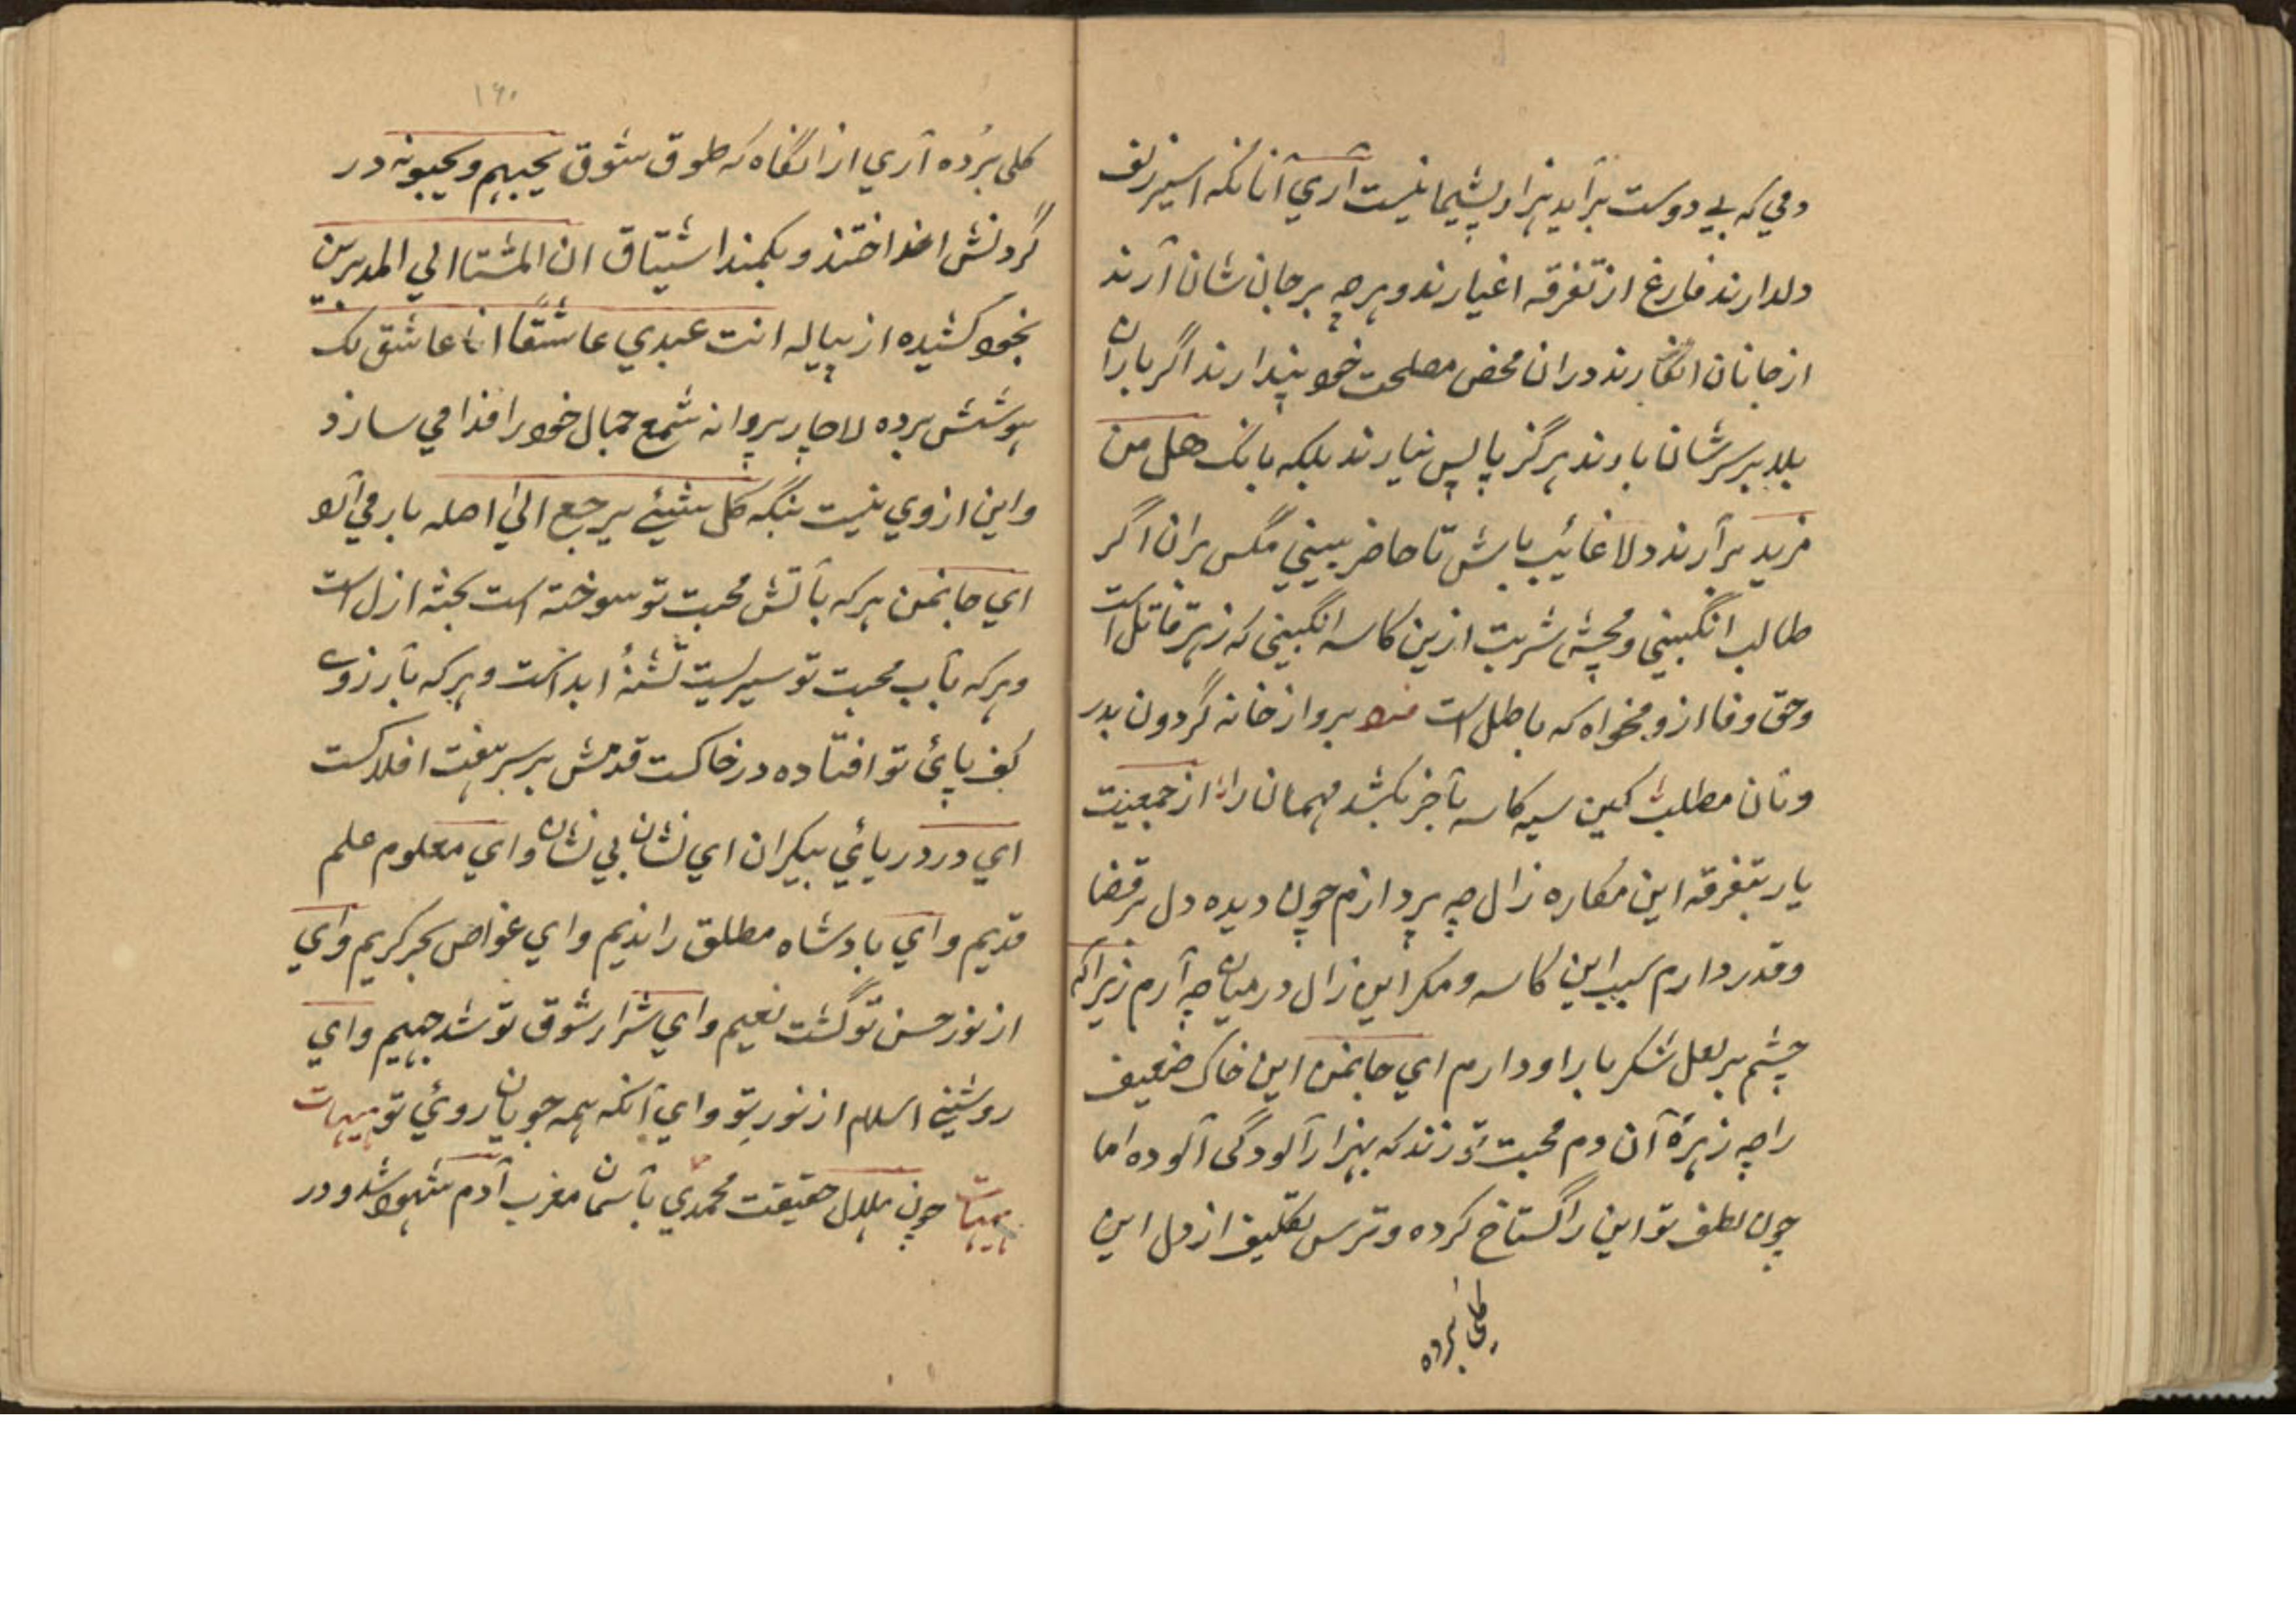 دمي که بے دوست برآید هزار پشیمانیست آري آنانکه اسیر زلف
دلدارند فارغ از تفرقه اغیارند و هرچه بر جان شان آرند
از جانان انگارند دران محض مصلحت خود پندارند اگر باران
بلا بر سرشان بارند هرگز پا پس نیارند بلکه بانگ هل من
مزید برآرند دلا غائب باش تا حاضر ببیني مگس بران اگر
طالب انگبیني و مچش شربت ازین کاسه انگبیني که زهر قاتل است
و حق وفا ازو مخواه که باطل است برو از خانه گردون بدر
و نان مطلب کین سیه کاسه بآخر بکشد مهمان را از جمعیت
یار بتفرقه این مکاره زال چه پردازم چون دیده دل بر قضا
و قدر دارم سبب این کاسه و مکر این زال درمیان چه آرم زیراکه
چشم بر لعل شکر بار او دارم اي جانمن این خاک ضعیف
را چه زهرهٔ آن دم محبت تو زند که بهزار آلودگی آلوده اما
چون لطف تو این را گستاخ کرده و ترس تکلیف از دل این
کلی برده
۱۶۰
کلی برده آري از انگاه که طوق شوق یحبهم و یحبونه در
گردنش انداختند و بکمند اشتیاق ان المشتا الي المدبرین
بخود کشیده از پیاله انت عبدي عاشقاً انا عاشق لک
هوشش برده لاچار پروانه شمع جمال خود را فدا می سازد
و این از وي نیست بنگه کل شیئے یرجع الی اصله بار می آلا
اي جانمن هرکه بآتش محبت تو سوخته است پخته ازل است
و هرکه بآب محبت تو سیرابست تشنهٔ ابد است و هرکه بآرزوے
کف پائ تو افتاده در خاکست قدمش بر سر هفت افلاکست
اي در دریائي بیکران اي نشان بي نشان و اي معلوم علم
قدیم و اي بادشاه مطلق را ندیم و اي غواص بحر کریم و اي
از نور حسن تو گشت نعیم و اي شرار شوق تو شد جهیم و اي
روشنے اسلام از نور تو و اي آنکه همه جویان روئي تو هیهات
هیهات چون هلال حقیقت محمدي بآسمان مغرب آدم شهود شد و در